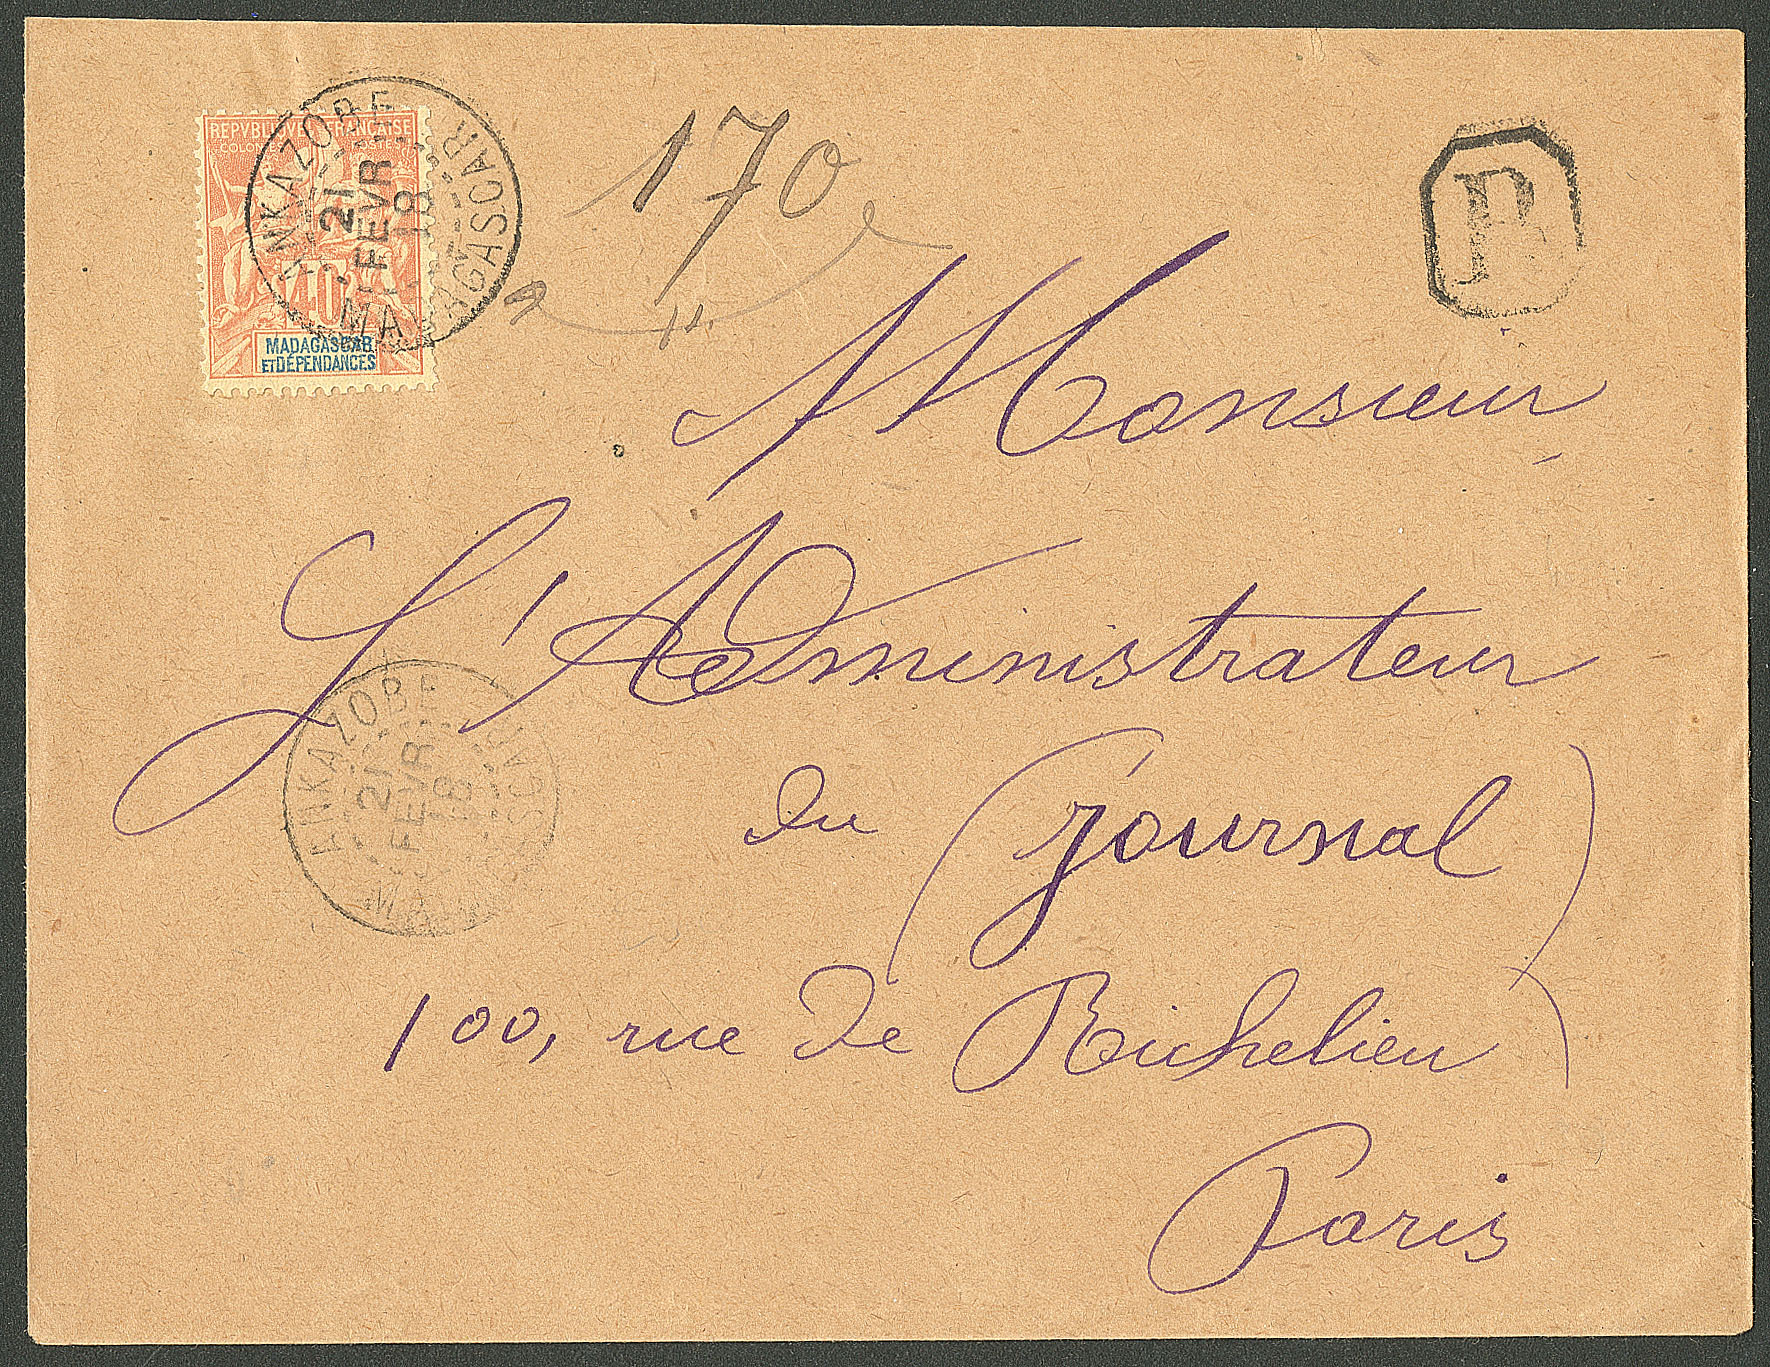 REPVBLIQVE FRANÇAISE
COLONIES POSTES
40
MADAGASCAR
ET DÉPENDANCES
ANKAZOBE
21
FEVR
18
MADAGASCAR
170
R
Monsieur
L'Administrateur
du Journal
100, rue de Richelieu
Paris
ANKAZOBE
21
FEVR
18
MADAGASCAR